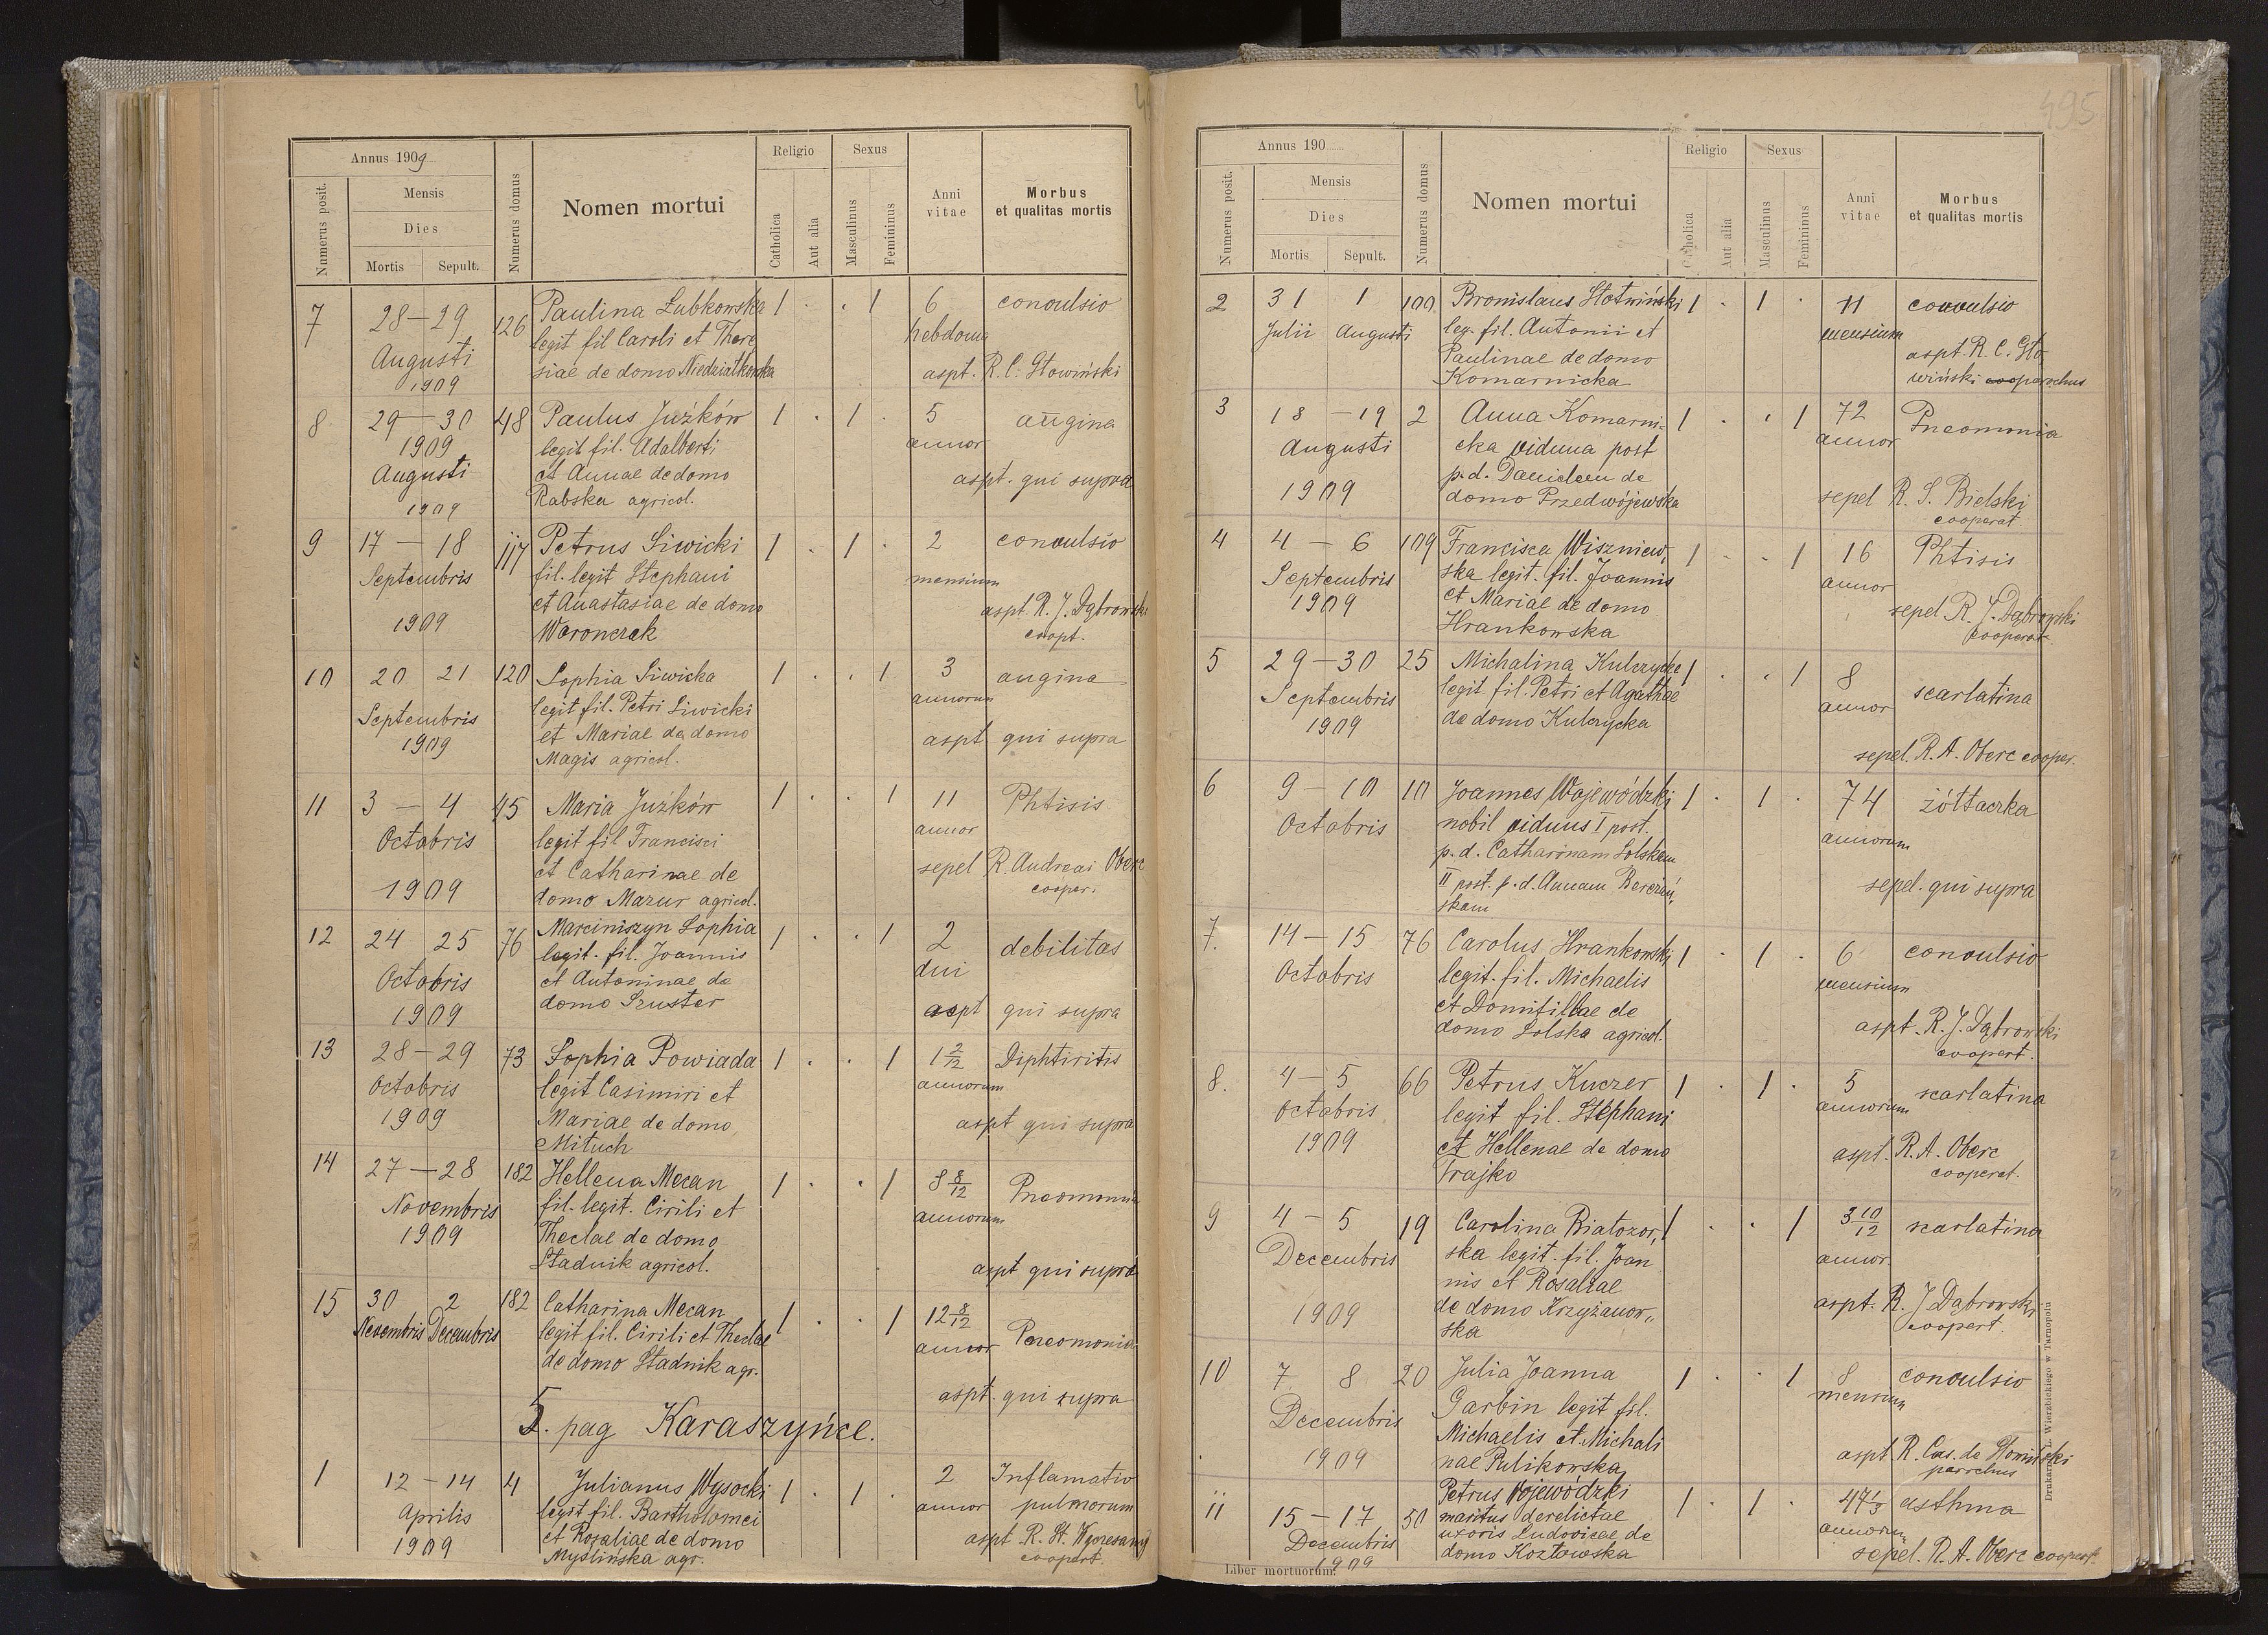 Annus 1909
Numerus posit.
Mensis
Dies
Mortis Sepult.
Numerus domus
Nomen mortui
Religio
Catholica
Aut alia
Sexus
Masculinus
Femininus
Anni vitae
Morbus et qualitas mortis
7 28 — 29 126 Paulina Łubkowska 1 . . 1 6 convulsio
Augusti legit fil Caroli et There hebdom
1909 siae de domo Niedziałkowska aspt. R. C. Słowiński
8 29 — 30 48 Paulus Juźków 1 . 1 . 5 angina
1909 legit fil. Adalberti annor
Augusti et Annae de domo aspt. qui supra
1909 Rabska agricol.
9 17 — 18 117 Petrus Siwicki 1 . 1 . 2 convulsio
Septembris fil. legit Stephani mensium
et Anastasiae de domo aspt. R. J. Dąbrowski
1909 Woronczak coopt.
10 20 21 120 Sophia Siwicka 1 . . 1 3 angina
Septembris legit fil. Petri Siwicki annorum
1909 et Mariae de domo aspt qui supra
Magis agricol.
11 3 — 4 45 Maria Juźków 1 . . 1 11 Phtisis
Octobris legit fil Francisci annor
et Catharinae de sepel R. Andreas Oberc
1909 domo Mazur agricol. cooper.
12 24 25 76 Marciniszyn Sophia 1 . . 1 2 debilitas
Octobris legit. fil. Joannis dui
et Antoninae de
1909 domo Szuster aspt qui supra
13 28 — 29 73 Sophia Powiada 1 . . 1 1 2/12 Diphtiritis
Octobris legit Casimiri et annorum
1909 Mariae de domo aspt qui supra
Mituch
14 27 — 28 182 Hellena Mecan 1 . . 1 8 8/12 Pneomonia
Novembris fil. legit. Cirili et annorum
1909 Theclae de domo
Stadnik agricol. aspt qui supra
15 30 2 182 Catharina Mecan 1 . . 1 12 8/12 Pneomonia
Novembris Decembris legit fil. Cirili et Theclae annor
de domo Stadnik agr. aspt. qui supra
5. pag Karaszyńce.
1 12 — 14 4 Julianus Wysocki 1 . 1 . 2 Inflamatio
Aprilis legit fil. Bartholomei annor pulmorum
1909 et Rozaliae de domo aspt. R. St.
Myślińska agr. coopert.
495
Annus 190
Numerus posit.
Mensis
Dies
Mortis Sepult.
Numerus domus
Nomen mortui
Religio
Catholica
Aut alia
Sexus
Masculinus
Femininus
Anni vitae
Morbus et qualitas mortis
2 31 1 100 Bronislaus Słotwiński 1 . 1 . 11 convulsio
Julii Augusti leg. fil. Antonii et mensium
Paulinae de domo aspt. R. C. Sło
Komarnicka wiński parochus
3 18 — 19 2 Anna Komarni- 1 . . 1 72 Pneomonia
Augusti cka vidua post annor
p. d. Danielem de sepel R. S. Bielski
1909 domo Przedwójewska cooperat
4 4 — 6 109 Francisca Wiszniew- 1 . . 1 16 Phtisis
Septembris ska legit. fil. Joannis annor
1909 et Mariae de domo sepel. R. J. Dąbrowski
Hrankowska cooperat.
5 29 — 30 25 Michalina Kulczycka 1 . . 1 8 scarlatina
Septembris legit. fil. Petri et Agathae annor
1909 de domo Kulczycka
sepel. R. A. Oberc cooper.
6 9 — 10 10 Joannes Wojewódzki 1 . 1 . 74 żółtaczka
Octobris nobil viduus I post. annorum
p. d. Catharinam Solskam
II post. p. d. Annam Bereżań- sepel. qui supra
skam
7. 14 — 15 76 Carolus Hrankowski 1 . 1 . 6 convulsio
Octobris legit. fil. Michaelis mensium
et Domitillae de aspt. R. J. Dąbrowski
domo Solska agricol. coopert.
8. 4 — 5 66 Petrus Kuczer 1 . 1 . 5 scarlatina
Octobris legit fil. Stephani annorum
1909 et Hellenae de domo aspt. R. A. Oberc
Trajko cooperat.
9 4 — 5 19 Carolina Białozor, 1 . . 1 3 10/12 scarlatina
Decembris ska legit. fil. Joan annor
nis et Rosaliae aspt. R. J Dąbrowski
1909 de domo Krzyżanow„ coopert.
ska
10 7 8 20 Julia Joanna 1 . . 1 8 convulsio
Decembris Garbin legit fil. mensium
Michaelis et Michali aspt R. Cas. de Słowiński
1909 nae Pulikowska parochus
11 15 — 17 50 Petrus Wojewódzki 1 . 1 . 47 1/3 asthma
Decembris maritus derelictae annorum
1909 uxoris Ludovicae de sepel. R. A. Oberc coopert.
domo Kozłowska
Liber mortuorum.
Drukarnia Wierzbickiego w Tarnopolu